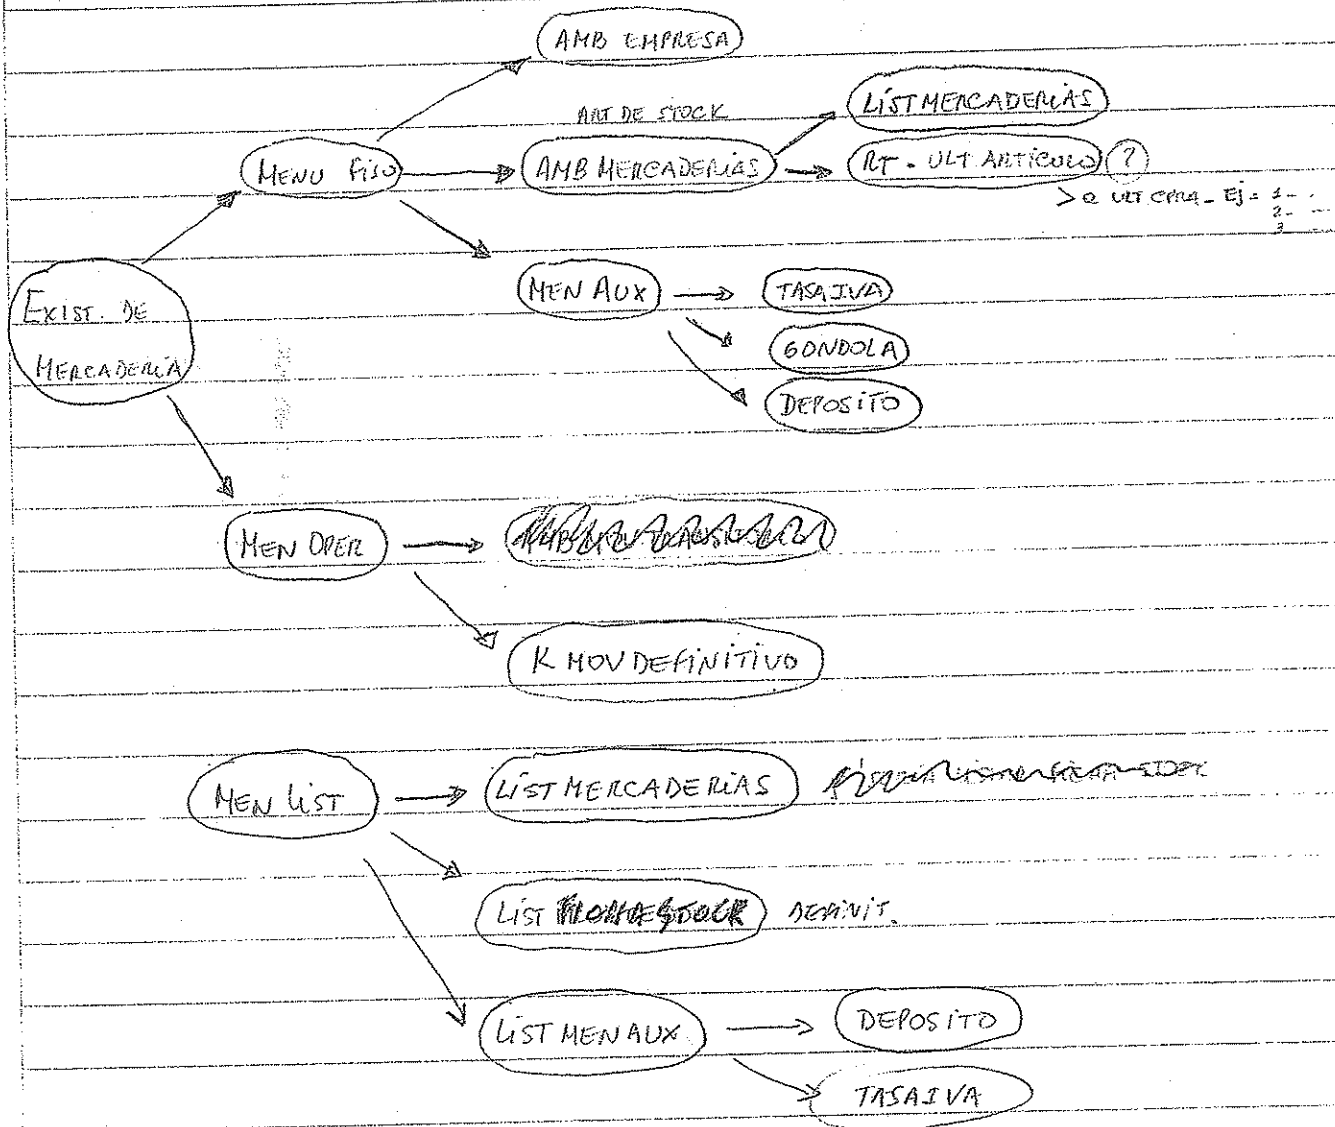 AMB EMPRESA
ART DE STOCK
LIST MERCADERIAS
MENU FISU
AMB MERCADERIAS
RT - ULT ARTICULO (?)
> Q ULT CPRA - Ej = 1 -
2 -
3
MEN AUX
TASA IVA
GONDOLA
DEPOSITO
EXIST. DE
MERCADERIA
MEN OPER
K MOV DEFINITIVO
MEN LIST
LIST MERCADERIAS
LIST DEFINIT.
LIST MEN AUX
DEPOSITO
TASA IVA